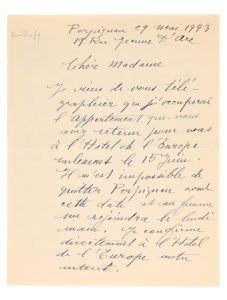 Perpignan 29 mai 1943
19 Rue Jeanne d'Arc
Chère Madame
Je viens de vous télé-
graphier que j'occuperai
l'appartement que vous
avez retenu pour vous
à l'Hôtel de l'Europe
seulement le 15 juin.
Il m'est impossible de
quitter Perpignan avant
cette date et ma femme
me rejoindra le lundi
Je confirme
directement à l'Hôtel
de l'Europe notre